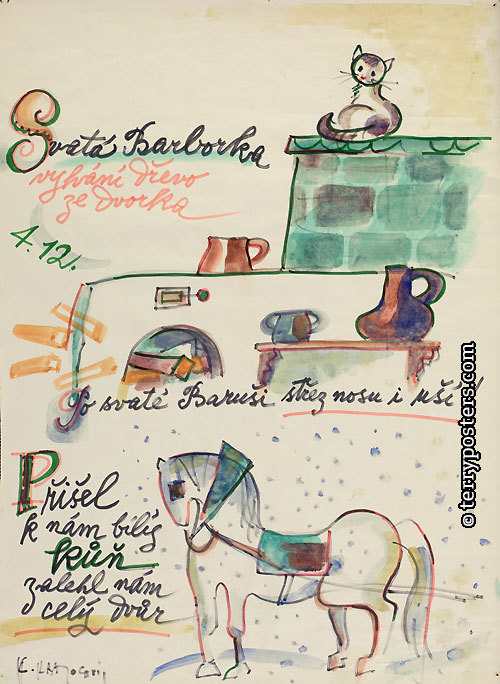 Svatá Barborka
vyhání dřevo
ze dvorka
4.12.
Po svaté Baruši střez nosu i uší!
Přišel
k nám bílý
kůň
zalehl nám
celý dvůr
© terryposters.com